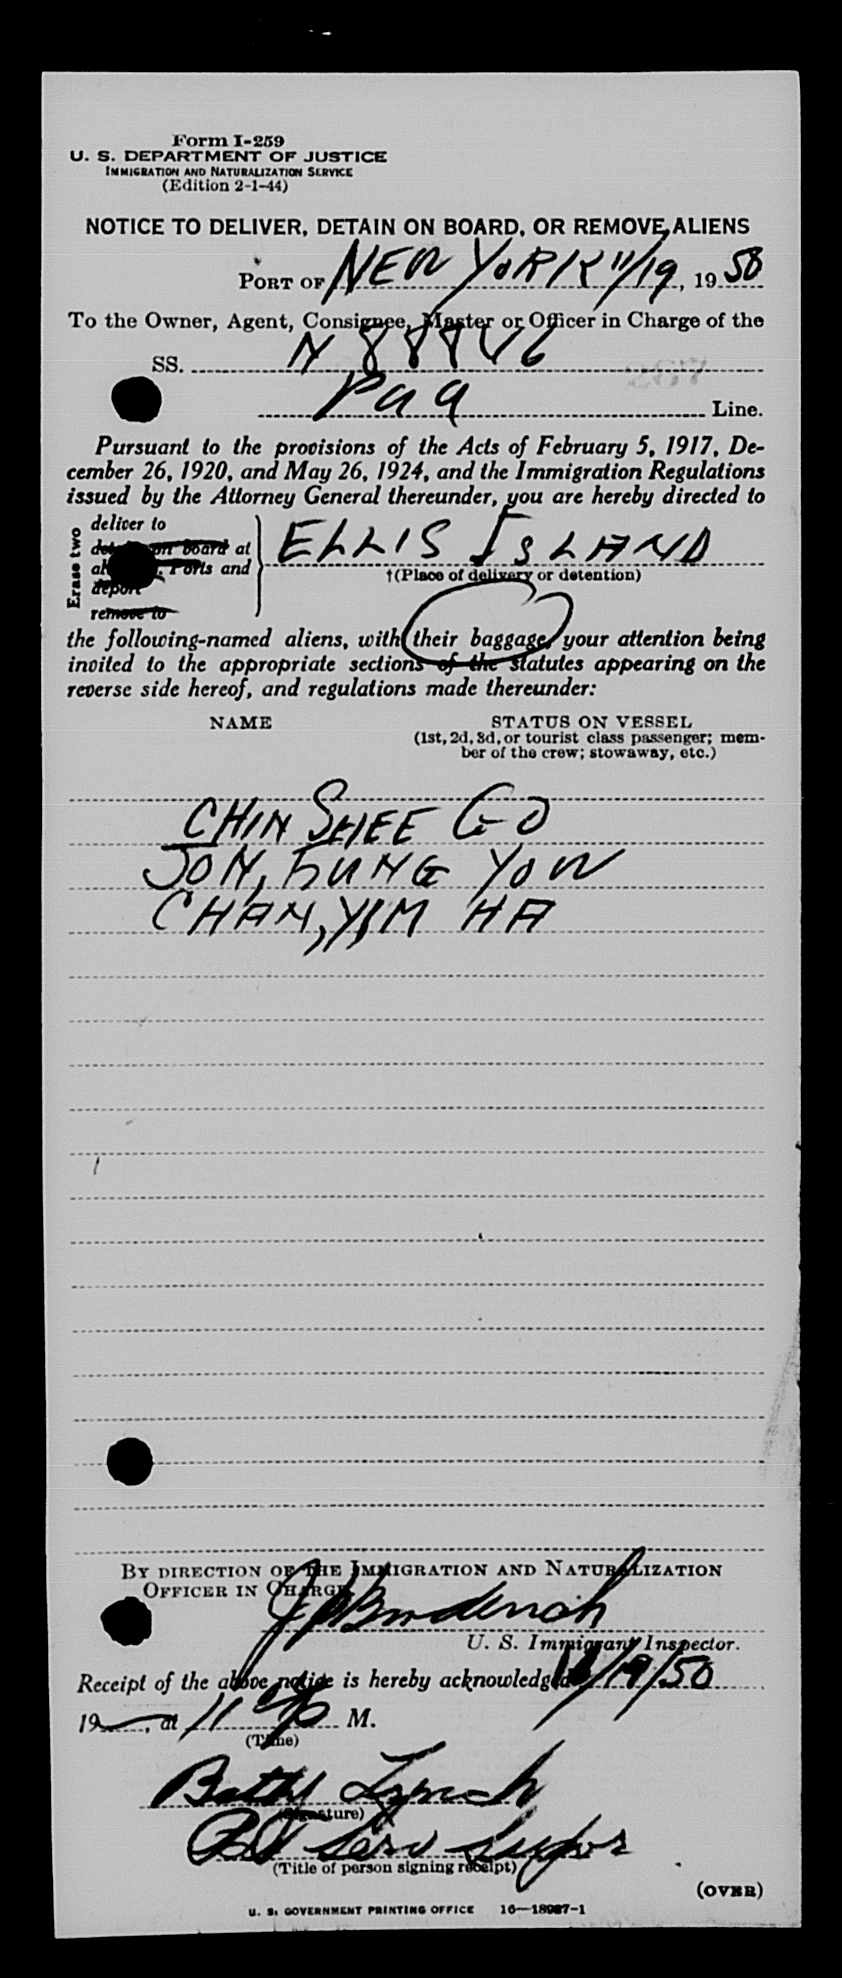 Form I-259
U. S. DEPARTMENT OF JUSTICE
IMMIGRATION AND NATURALIZATION SERVICE
(Edition 2-1-44)
NOTICE TO DELIVER, DETAIN ON BOARD, OR REMOVE ALIENS
PORT OF NEW YORK 11/19, 1950
To the Owner, Agent, Consignee, Master or Officer in Charge of the
SS. N
PAA Line.
Pursuant to the provisions of the Acts of February 5, 1917, De-
cember 26, 1920, and May 26, 1924, and the Immigration Regulations
issued by the Attorney General thereunder, you are hereby directed to
Erase two
deliver to
on board at
Ports and
deport
remove to
ELLIS ISLAND
†(Place of delivery or detention)
the following-named aliens, with their baggage, your attention being
invited to the appropriate sections of the statutes appearing on the
reverse side hereof, and regulations made thereunder:
NAME STATUS ON VESSEL
(1st, 2d, 3d, or tourist class passenger; mem-
ber of the crew; stowaway, etc.)
CHIN SHEE GO
JON, HUNG YOW
CHAN, YIM HA
BY DIRECTION OF THE IMMIGRATION AND NATURALIZATION
OFFICER IN CHARGE
U. S. Immigrant Inspector.
Receipt of the above notice is hereby acknowledged 11/19/50
19 , at 11 M.
(Time)
Lynch
(Signature)
Serv
(Title of person signing receipt)
(OVER)
U. S. GOVERNMENT PRINTING OFFICE 16—18987-1